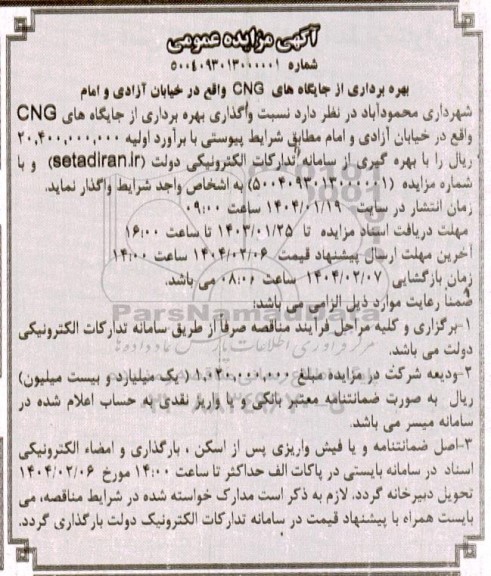 آگهی مزایده عمومی
شماره ۵۰۰۴۰۹۳۰۱۳۰۰۰۰۰۱
بهره برداری از جایگاه های CNG واقع در خیابان آزادی و امام
شهرداری محمودآباد در نظر دارد نسبت واگذاری بهره برداری از جایگاه های CNG
واقع در خیابان آزادی و امام مطابق شرایط پیوستی با برآورد اولیه ۲۰,۴۰۰,۰۰۰,۰۰۰
ریال را با بهره گیری از سامانه تدارکات الکترونیکی دولت (setadiran.ir) و با
شماره مزایده (۵۰۰۴۰۹۳۰۱۳۰۰۰۰۰۱) به اشخاص واجد شرایط واگذار نماید.
زمان انتشار در سایت ۱۴۰۴/۰۱/۱۹ ساعت ۰۹:۰۰
مهلت دریافت اسناد مزایده تا ۱۴۰۳/۰۱/۲۵ تا ساعت ۱۶:۰۰
آخرین مهلت ارسال پیشنهاد قیمت ۱۴۰۴/۰۲/۰۶ ساعت ۱۴:۰۰
زمان بازگشایی ۱۴۰۴/۰۲/۰۷ ساعت ۰۸:۰۶ می باشد.
ضمنا رعایت موارد ذیل الزامی می باشد:
۱-برگزاری و کلیه مراحل فرآیند مناقصه صرفاً از طریق سامانه تدارکات الکترونیکی
دولت می باشد.
۲-ودیعه شرکت در مزایده مبلغ ۱,۰۲۰,۰۰۰,۰۰۰ (یک میلیارد و بیست میلیون)
ریال به صورت ضمانتنامه معتبر بانکی و یا واریز نقدی به حساب اعلام شده در
سامانه میسر می باشد.
۳-اصل ضمانتنامه و یا فیش واریزی پس از اسکن ، بارگذاری و امضاء الکترونیکی
اسناد در سامانه بایستی در پاکات الف حداکثر تا ساعت ۱۴:۰۰ مورخ ۱۴۰۴/۰۲/۰۶
تحویل دبیرخانه گردد. لازم به ذکر است مدارک خواسته شده در شرایط مناقصه، می
بایست همراه با پیشنهاد قیمت در سامانه تدارکات الکترونیک دولت بارگذاری گردد.
ParsNamadData